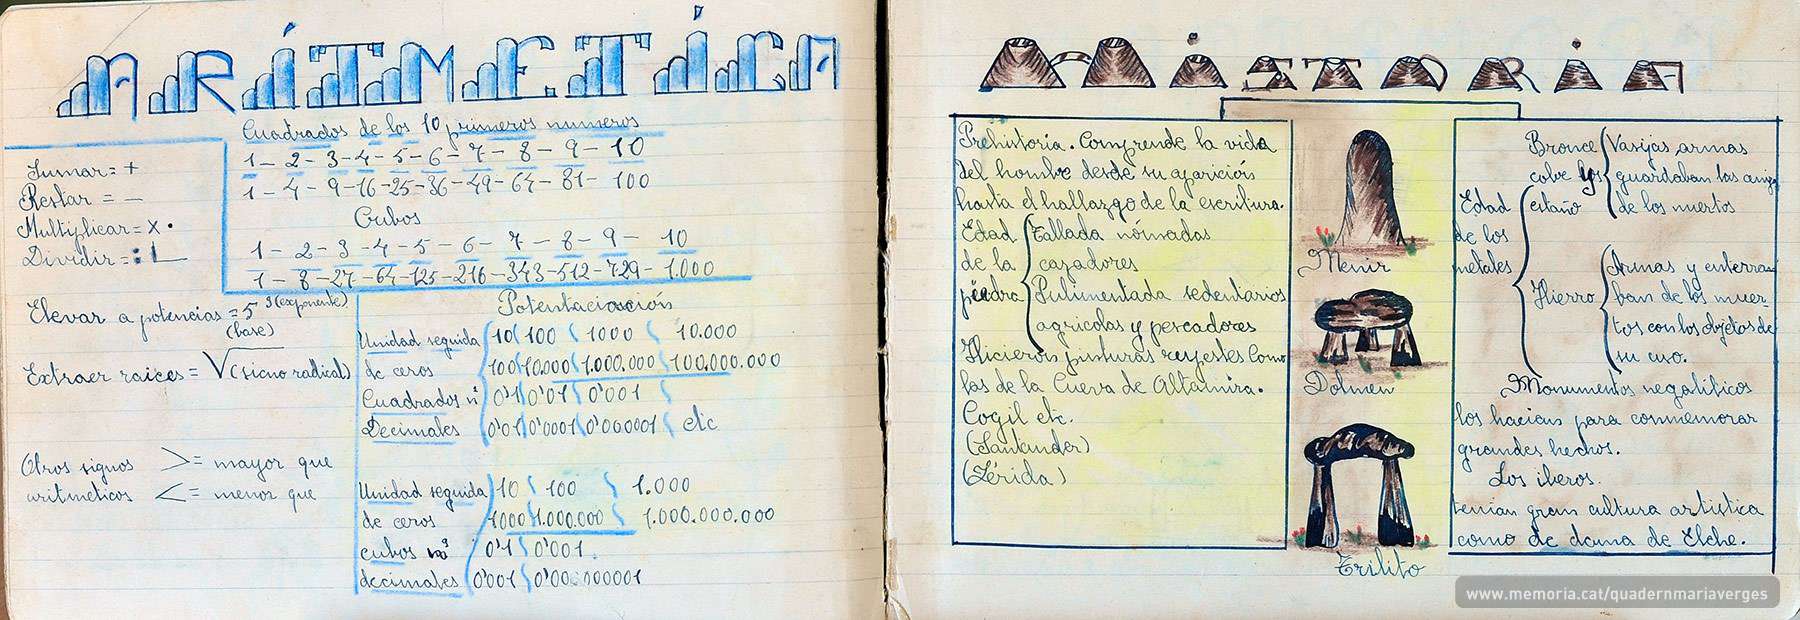 ARÍTMETÍCA
Cuadrados de los 10 primeros numeros
1 - 2 - 3 - 4 - 5 - 6 - 7 - 8 - 9 - 10
1 - 4 - 9 - 16 - 25 - 36 - 49 - 64 - 81 - 100
Cubos
1 - 2 - 3 - 4 - 5 - 6 - 7 - 8 - 9 - 10
1 - 8 - 27 - 64 - 125 - 216 - 343 - 512 - 729 - 1.000
Sumar = +
Restar = -
Multiplicar = x .
Dividir = : L
Elevar a potencias = 5 3 (exponente)
(base)
Extraer raices = √ (signo radical)
Otros signos > = mayor que
aritmeticos < = menor que
Potentaciación
Unidad seguida 10 100 1000 10.000
de ceros 100 10.000 1.000.000 100.000.000
Cuadrados nº 0'1 0'01 0'001
Decimales 0'01 0'0001 0'000001 etc
Unidad seguida 10 100 1.000
de ceros 1000 1.000.000 1.000.000.000
cubos 0'1 0'001
decimales 0'001 0'000000001
HISTORIA
Prehistoria. Comprende la vida
del hombre desde su aparición
hasta el hallazgo de la escritura.
Edad Tallada nómadas
de la cazadores
piedra Pulimentada sedentarios
agricolas y pescadores
Hicieron pinturas rupestes como
las de la Cueva de Altamira.
Cogil etc.
(Santander)
(Lérida)
Menir
Dolmen
Trilito
Bronce Vasijas, armas
cobre y guardaban las
Edad estaño de los muertos
de los
metales
Hierro Armas y enterra
ban de los muer-
tos con los objetos de
su uso.
Monumentos negaliticos
los hacian para conmemorar
grandes hechos.
Los iberos.
tenian gran cultura artistica
como de dcuna de Elche.
www.memoria.cat/quadernmariaverges